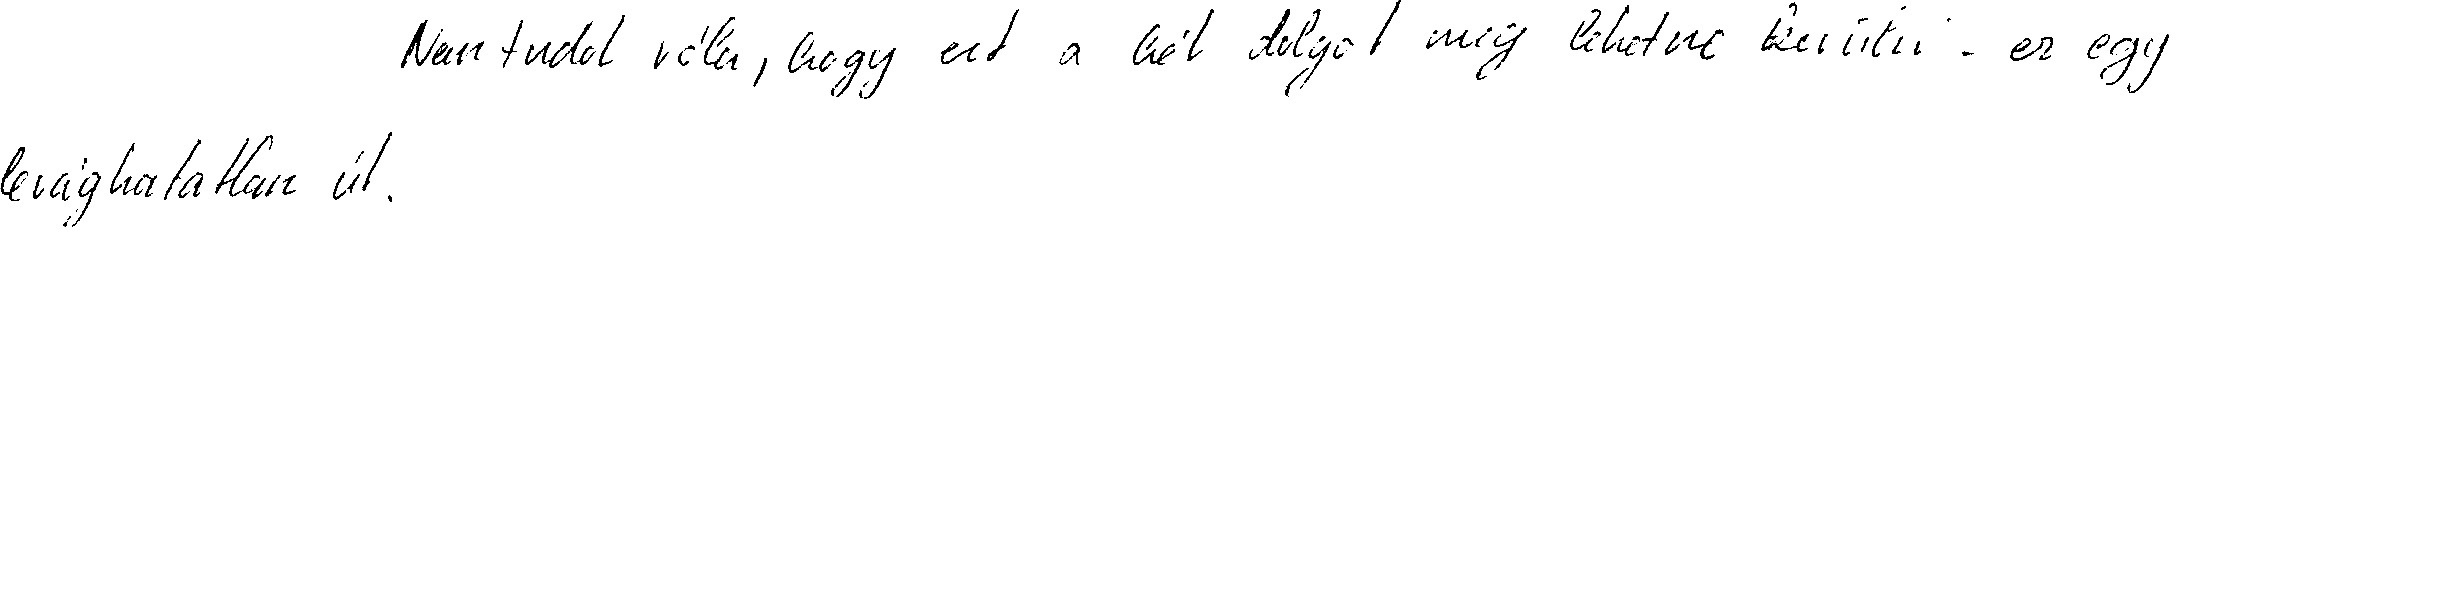 Nem tudok róla, hogy ezt a két dolgot meg lehetne kerülni - ez egy
levághatatlan út.